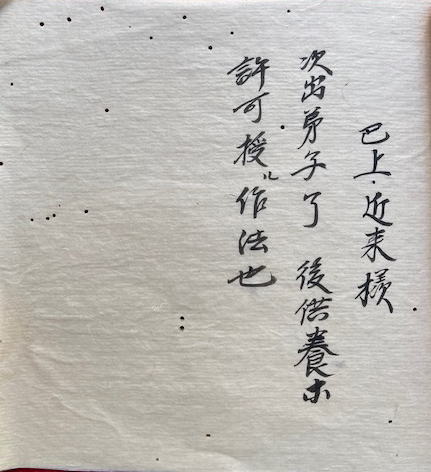 巴上・近来様
次出弟子了 後供養ホ
許可授ル作法也